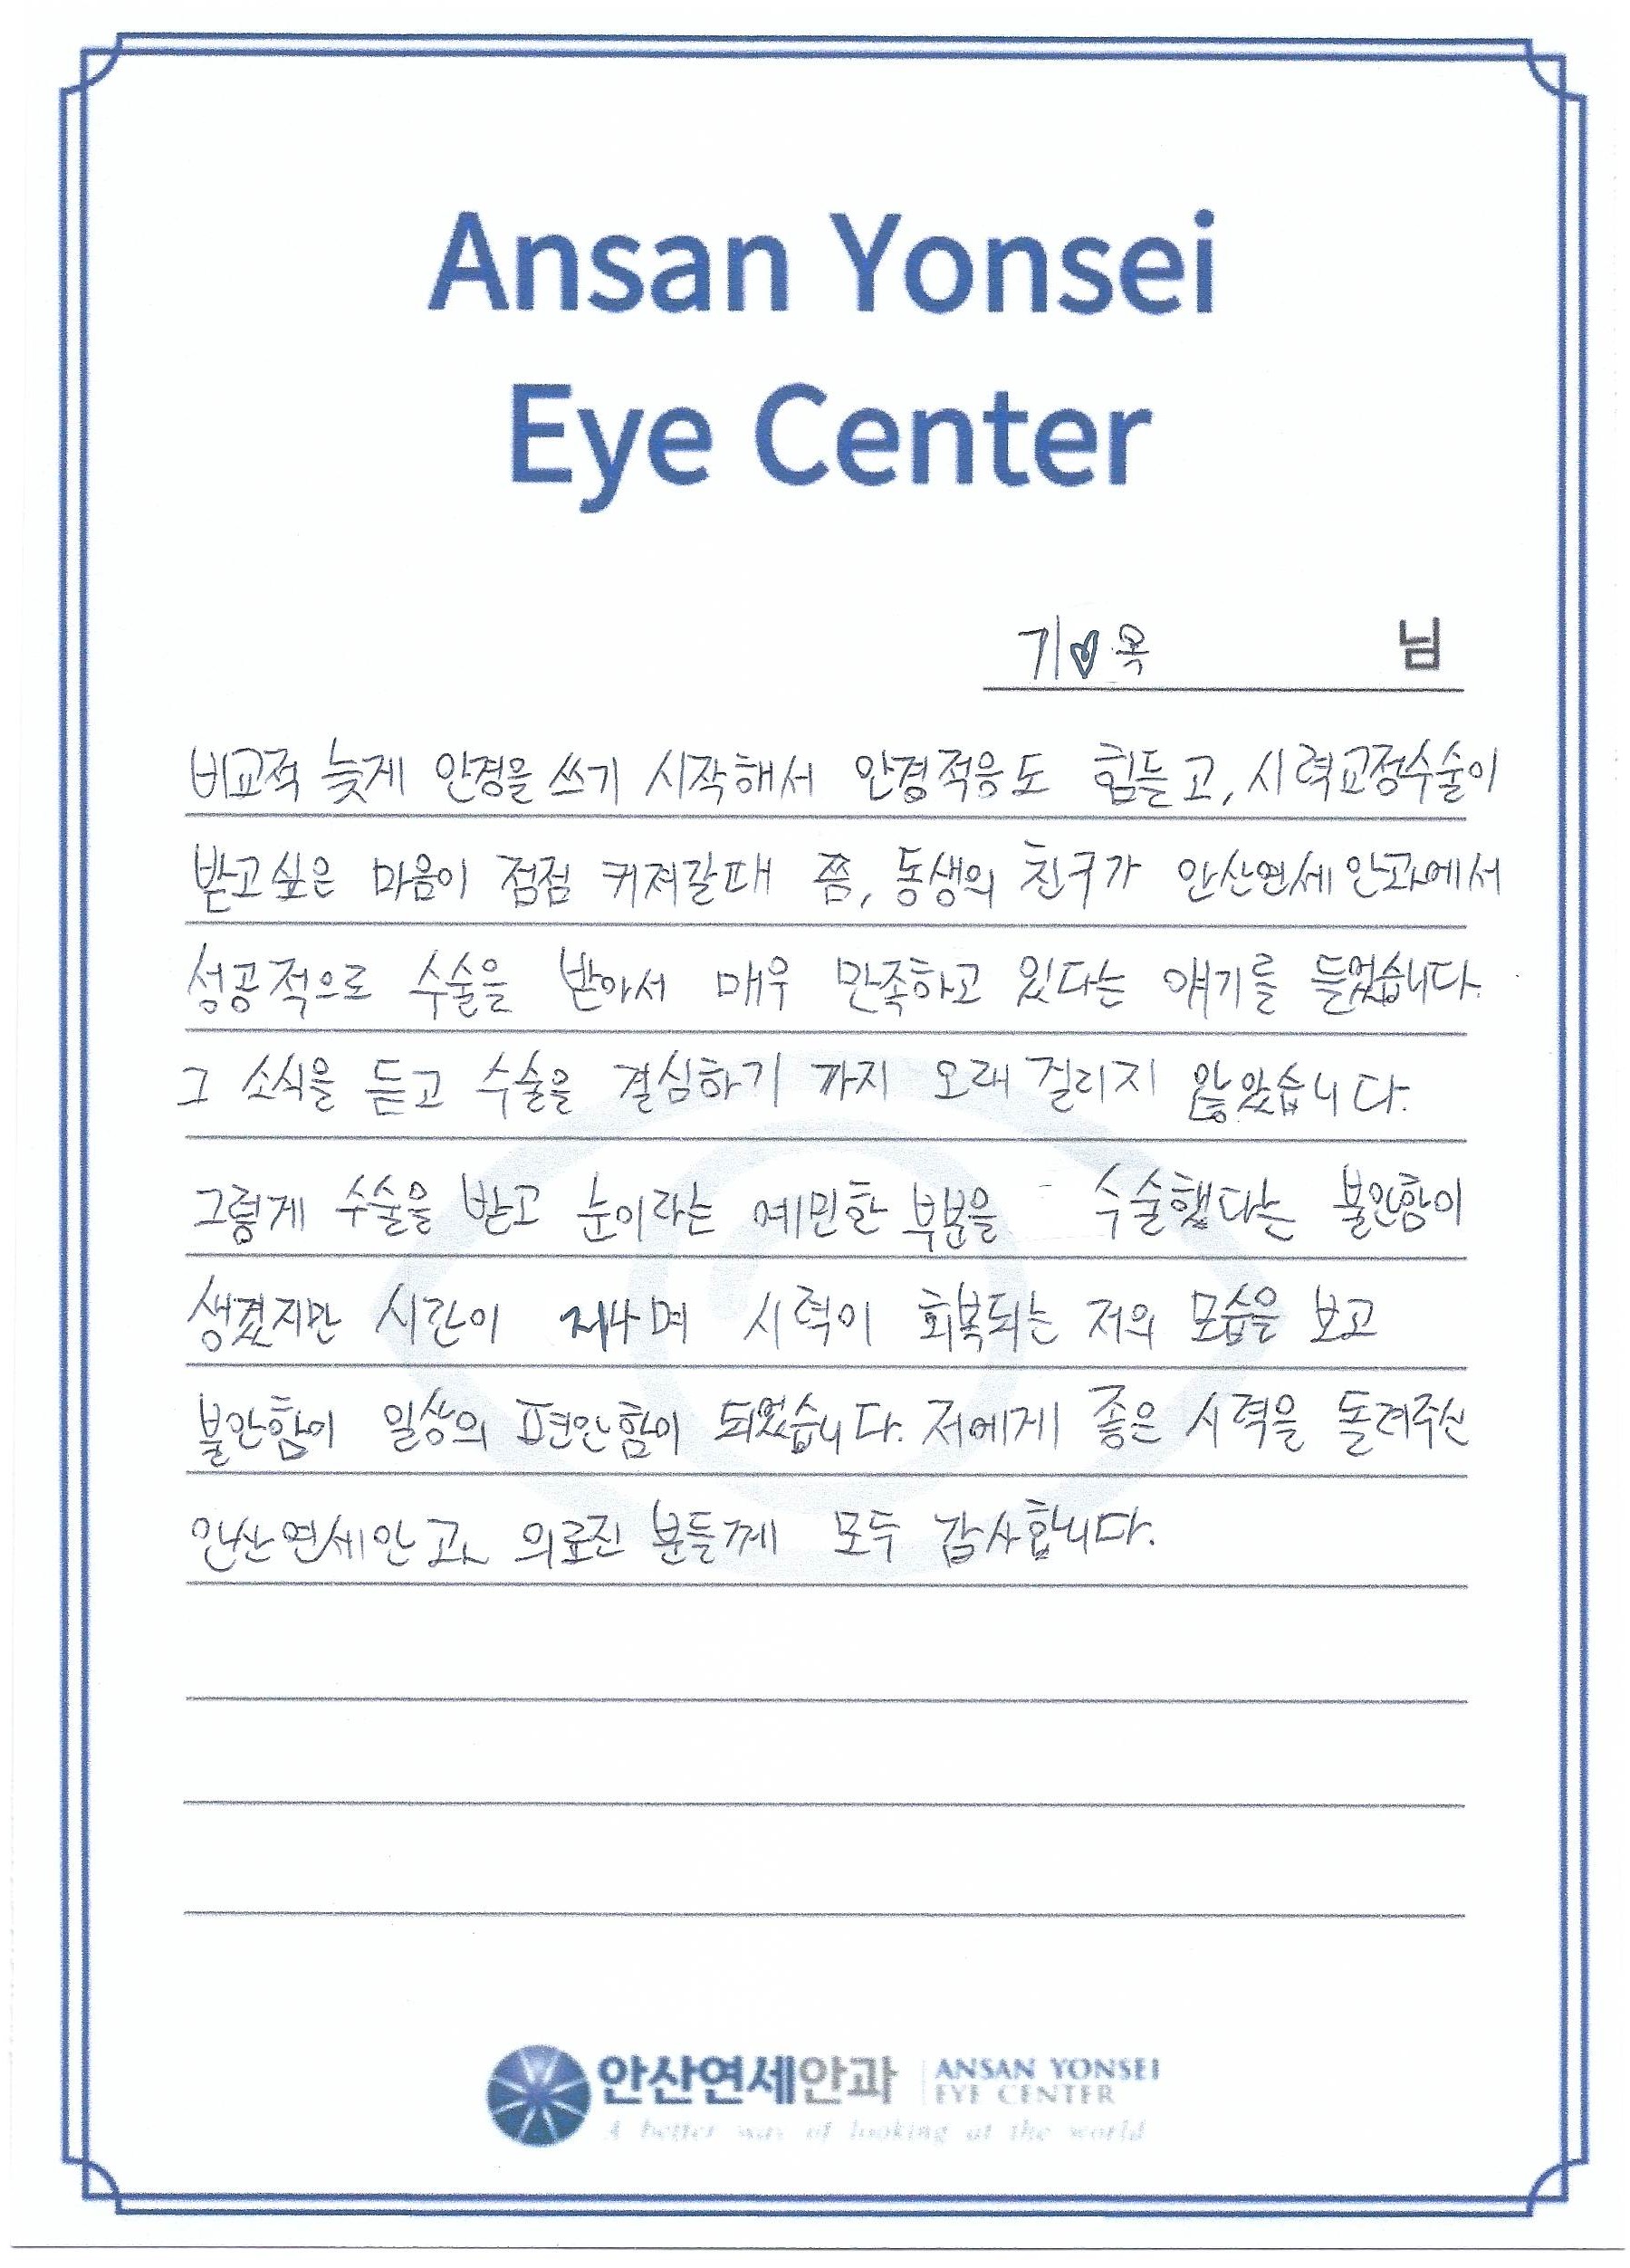 Ansan Yonsei
Eye Center
기♥옥 님
비교적 늦게 안경을 쓰기 시작해서 안경적응도 힘들고, 시력교정수술이
받고싶은 마음이 점점 커져갈때 쯤, 동생의 친구가 안산연세안과에서
성공적으로 수술을 받아서 매우 만족하고 있다는 얘기를 들었습니다.
그 소식을 듣고 수술을 결심하기 까지 오래 걸리지 않았습니다.
그렇게 수술을 받고 눈이라는 예민한 부분을 수술했다는 불안함이
생겼지만 시간이 지나며 시력이 회복되는 저의 모습을 보고
불안함이 일상의 편안함이 되었습니다. 저에게 좋은 시력을 돌려주신
안산연세안과 의료진 분들께 모두 감사합니다.
안산연세안과 ANSAN YONSEI
EYE CENTER
A better way of looking at the world